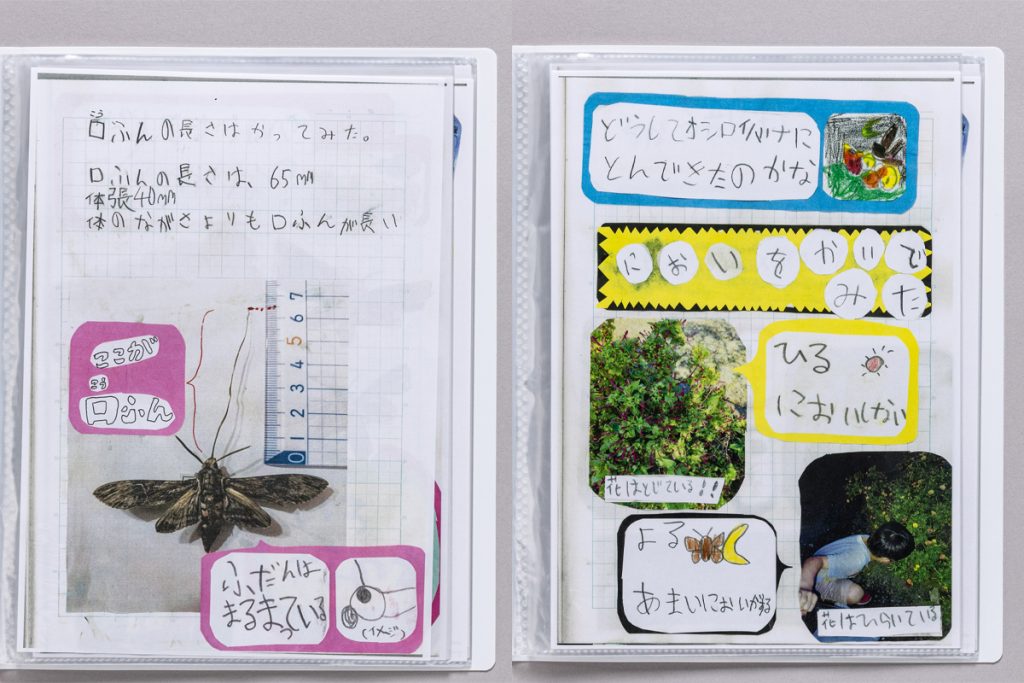 口ふんの長さはかってみた。
口ふんの長さは、65mm
体張40mm
体のながさよりも口ふんが長い
0 1 2 3 4 5 6 7
ここが
こう
口ふん
ふだんは
まるまっている
(イメジ)
どうしてオシロイバナに
とんできたのかな
においをかいで
みた
ひる
においしない
花はとじている!!
よる
あまいにおいがする
花はひらいている